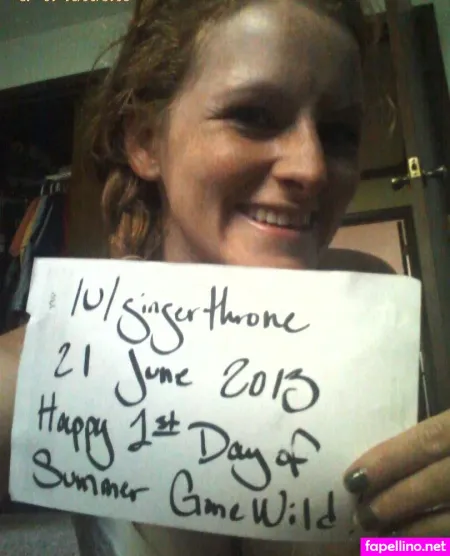 /u/gingerthrone
21 June 2013
Happy 1st Day of
Summer GoneWild
fapellino.net